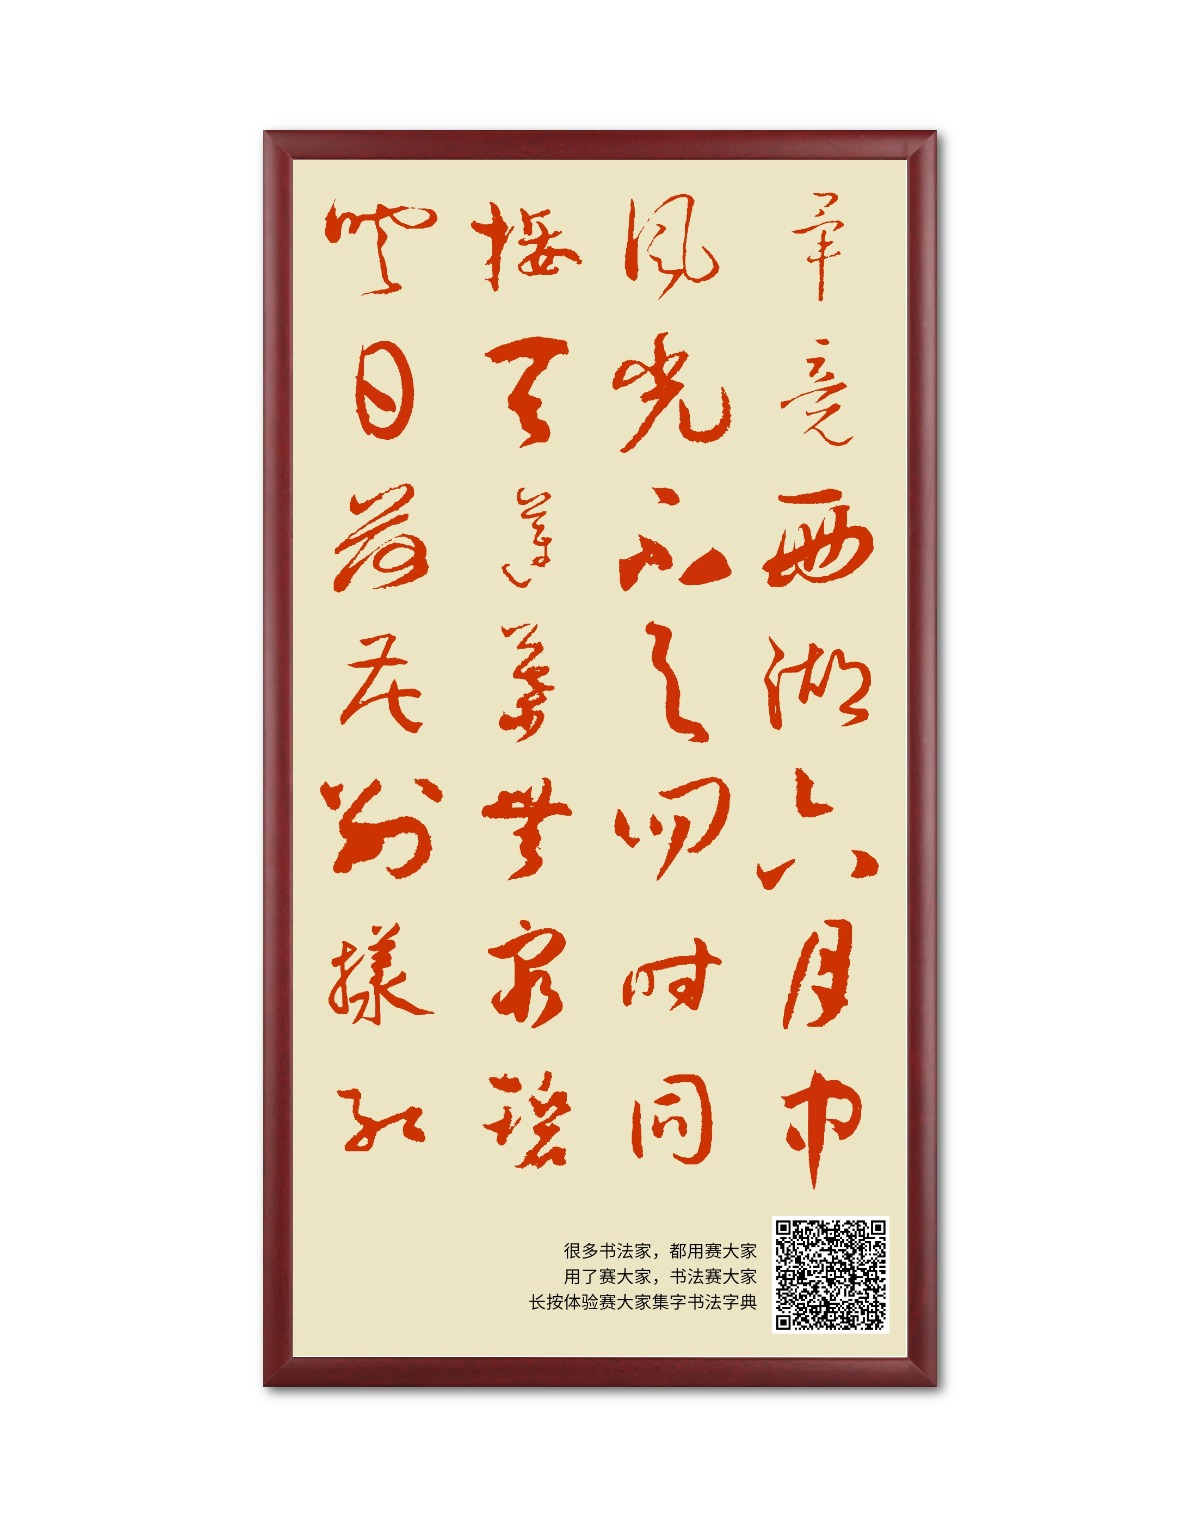 畢竟西湖六月中
風光不与四时同
接天蓮葉無窮碧
映日荷花别樣红
很多书法家，都用赛大家
用了赛大家，书法赛大家
长按体验赛大家集字书法字典